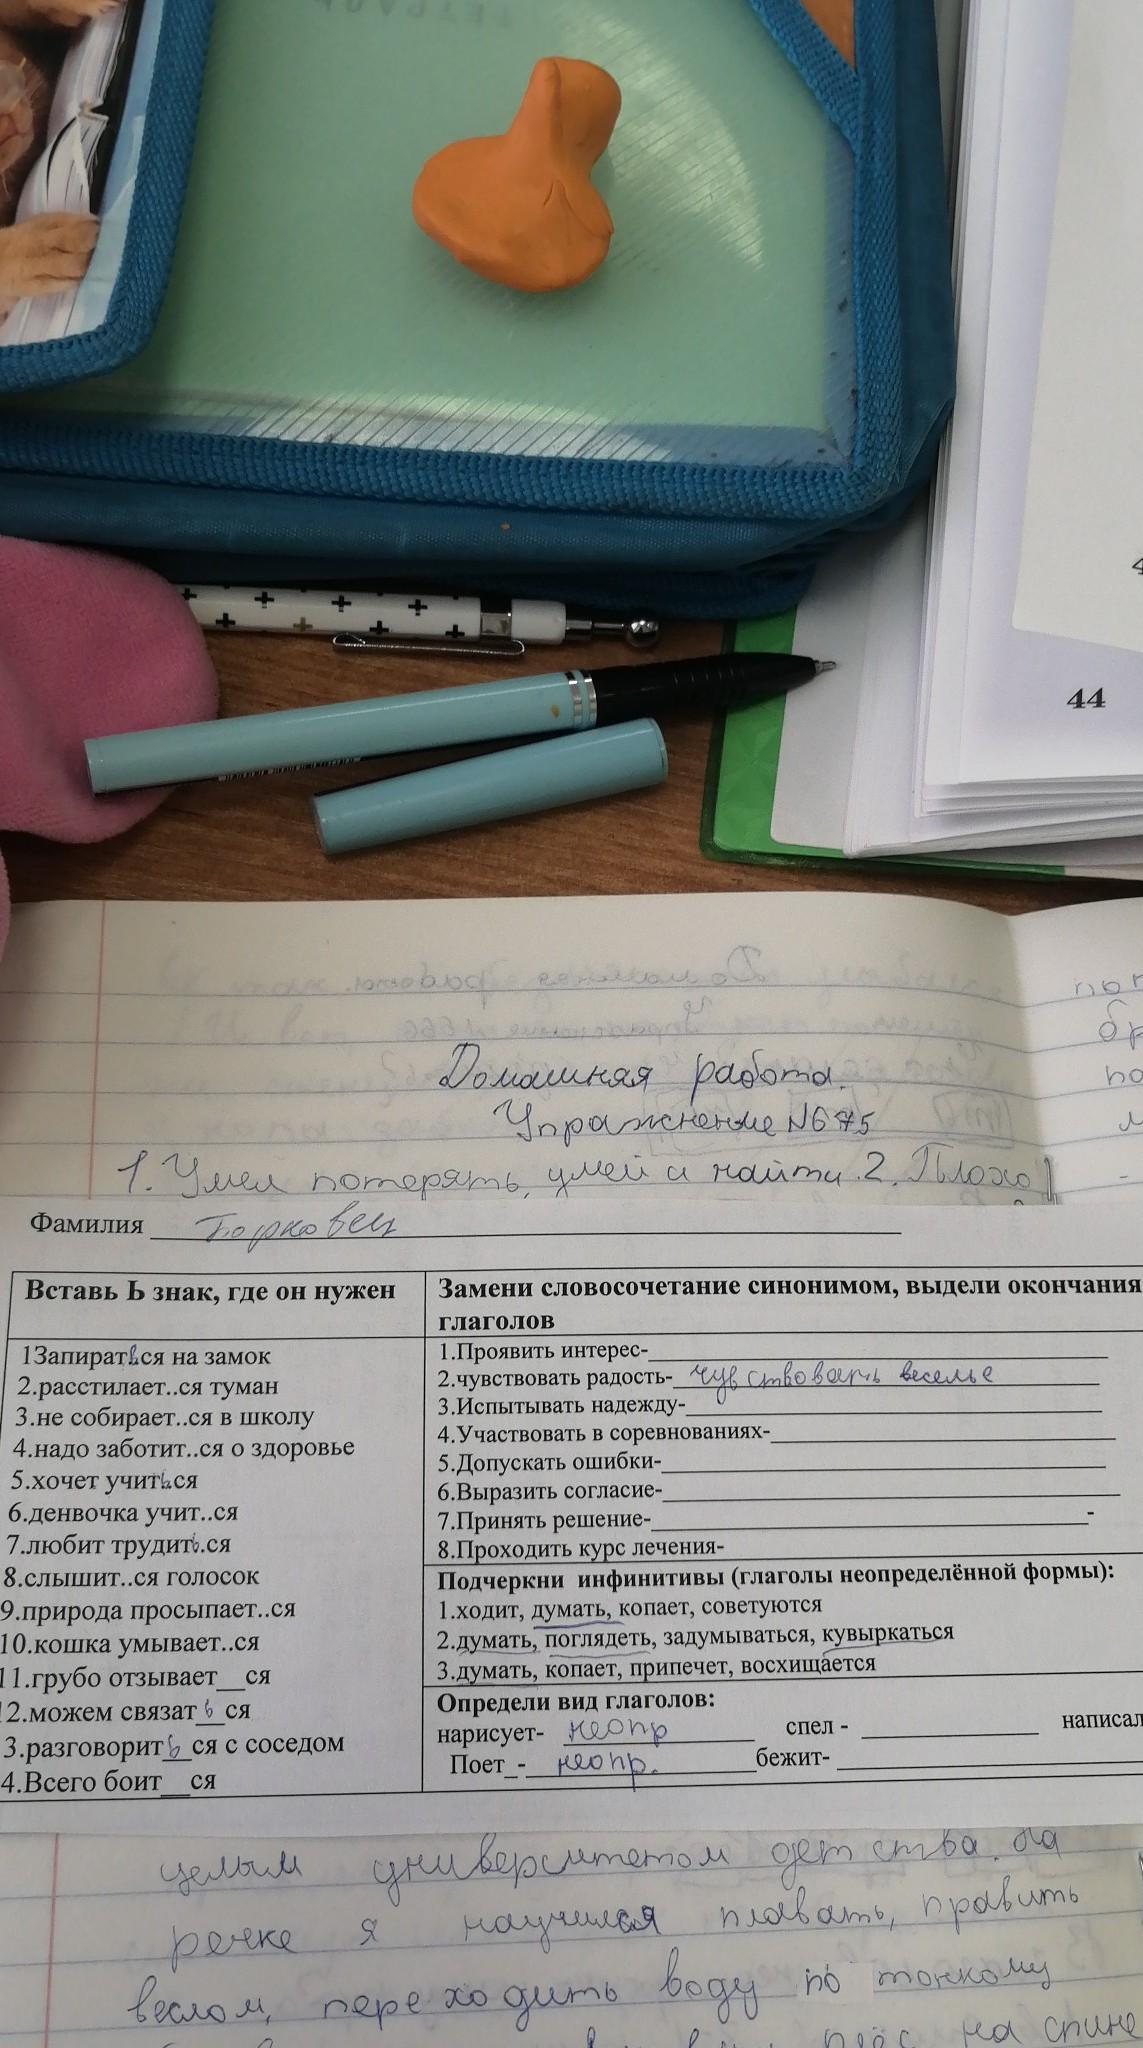 44
Домашняя работа.
Упражнение №675
1. Умел потерять, умей и найти. 2. Плохо
Фамилия Борковец
Вставь Ь знак, где он нужен
1Запиратьcя на замок
2.расстилает..ся туман
3.не собирает..ся в школу
4.надо заботит..ся о здоровье
5.хочет учиться
6.денвочка учит..ся
7.любит трудить.ся
8.слышит..ся голосок
9.природа просыпает..ся
10.кошка умывает..ся
11.грубо отзывает__ся
2.можем связат ь ся
3.разговорит ь ся с соседом
4.Всего боит__ся
Замени словосочетание синонимом, выдели окончания
глаголов
1.Проявить интерес-
2.чувствовать радость- чувствовать веселье
3.Испытывать надежду-
4.Участвовать в соревнованиях-
5.Допускать ошибки-
6.Выразить согласие-
7.Принять решение- -
8.Проходить курс лечения-
Подчеркни инфинитивы (глаголы неопределённой формы):
1.ходит, думать, копает, советуются
2.думать, поглядеть, задумываться, кувыркаться
3.думать, копает, припечет, восхищается
Определи вид глаголов:
нарисует- неопр спел - написал
Поет_- неопр. бежит-
целым университетом детства. На
речке я научился плавать, править
веслом, переходить воду по тонкому
на спине